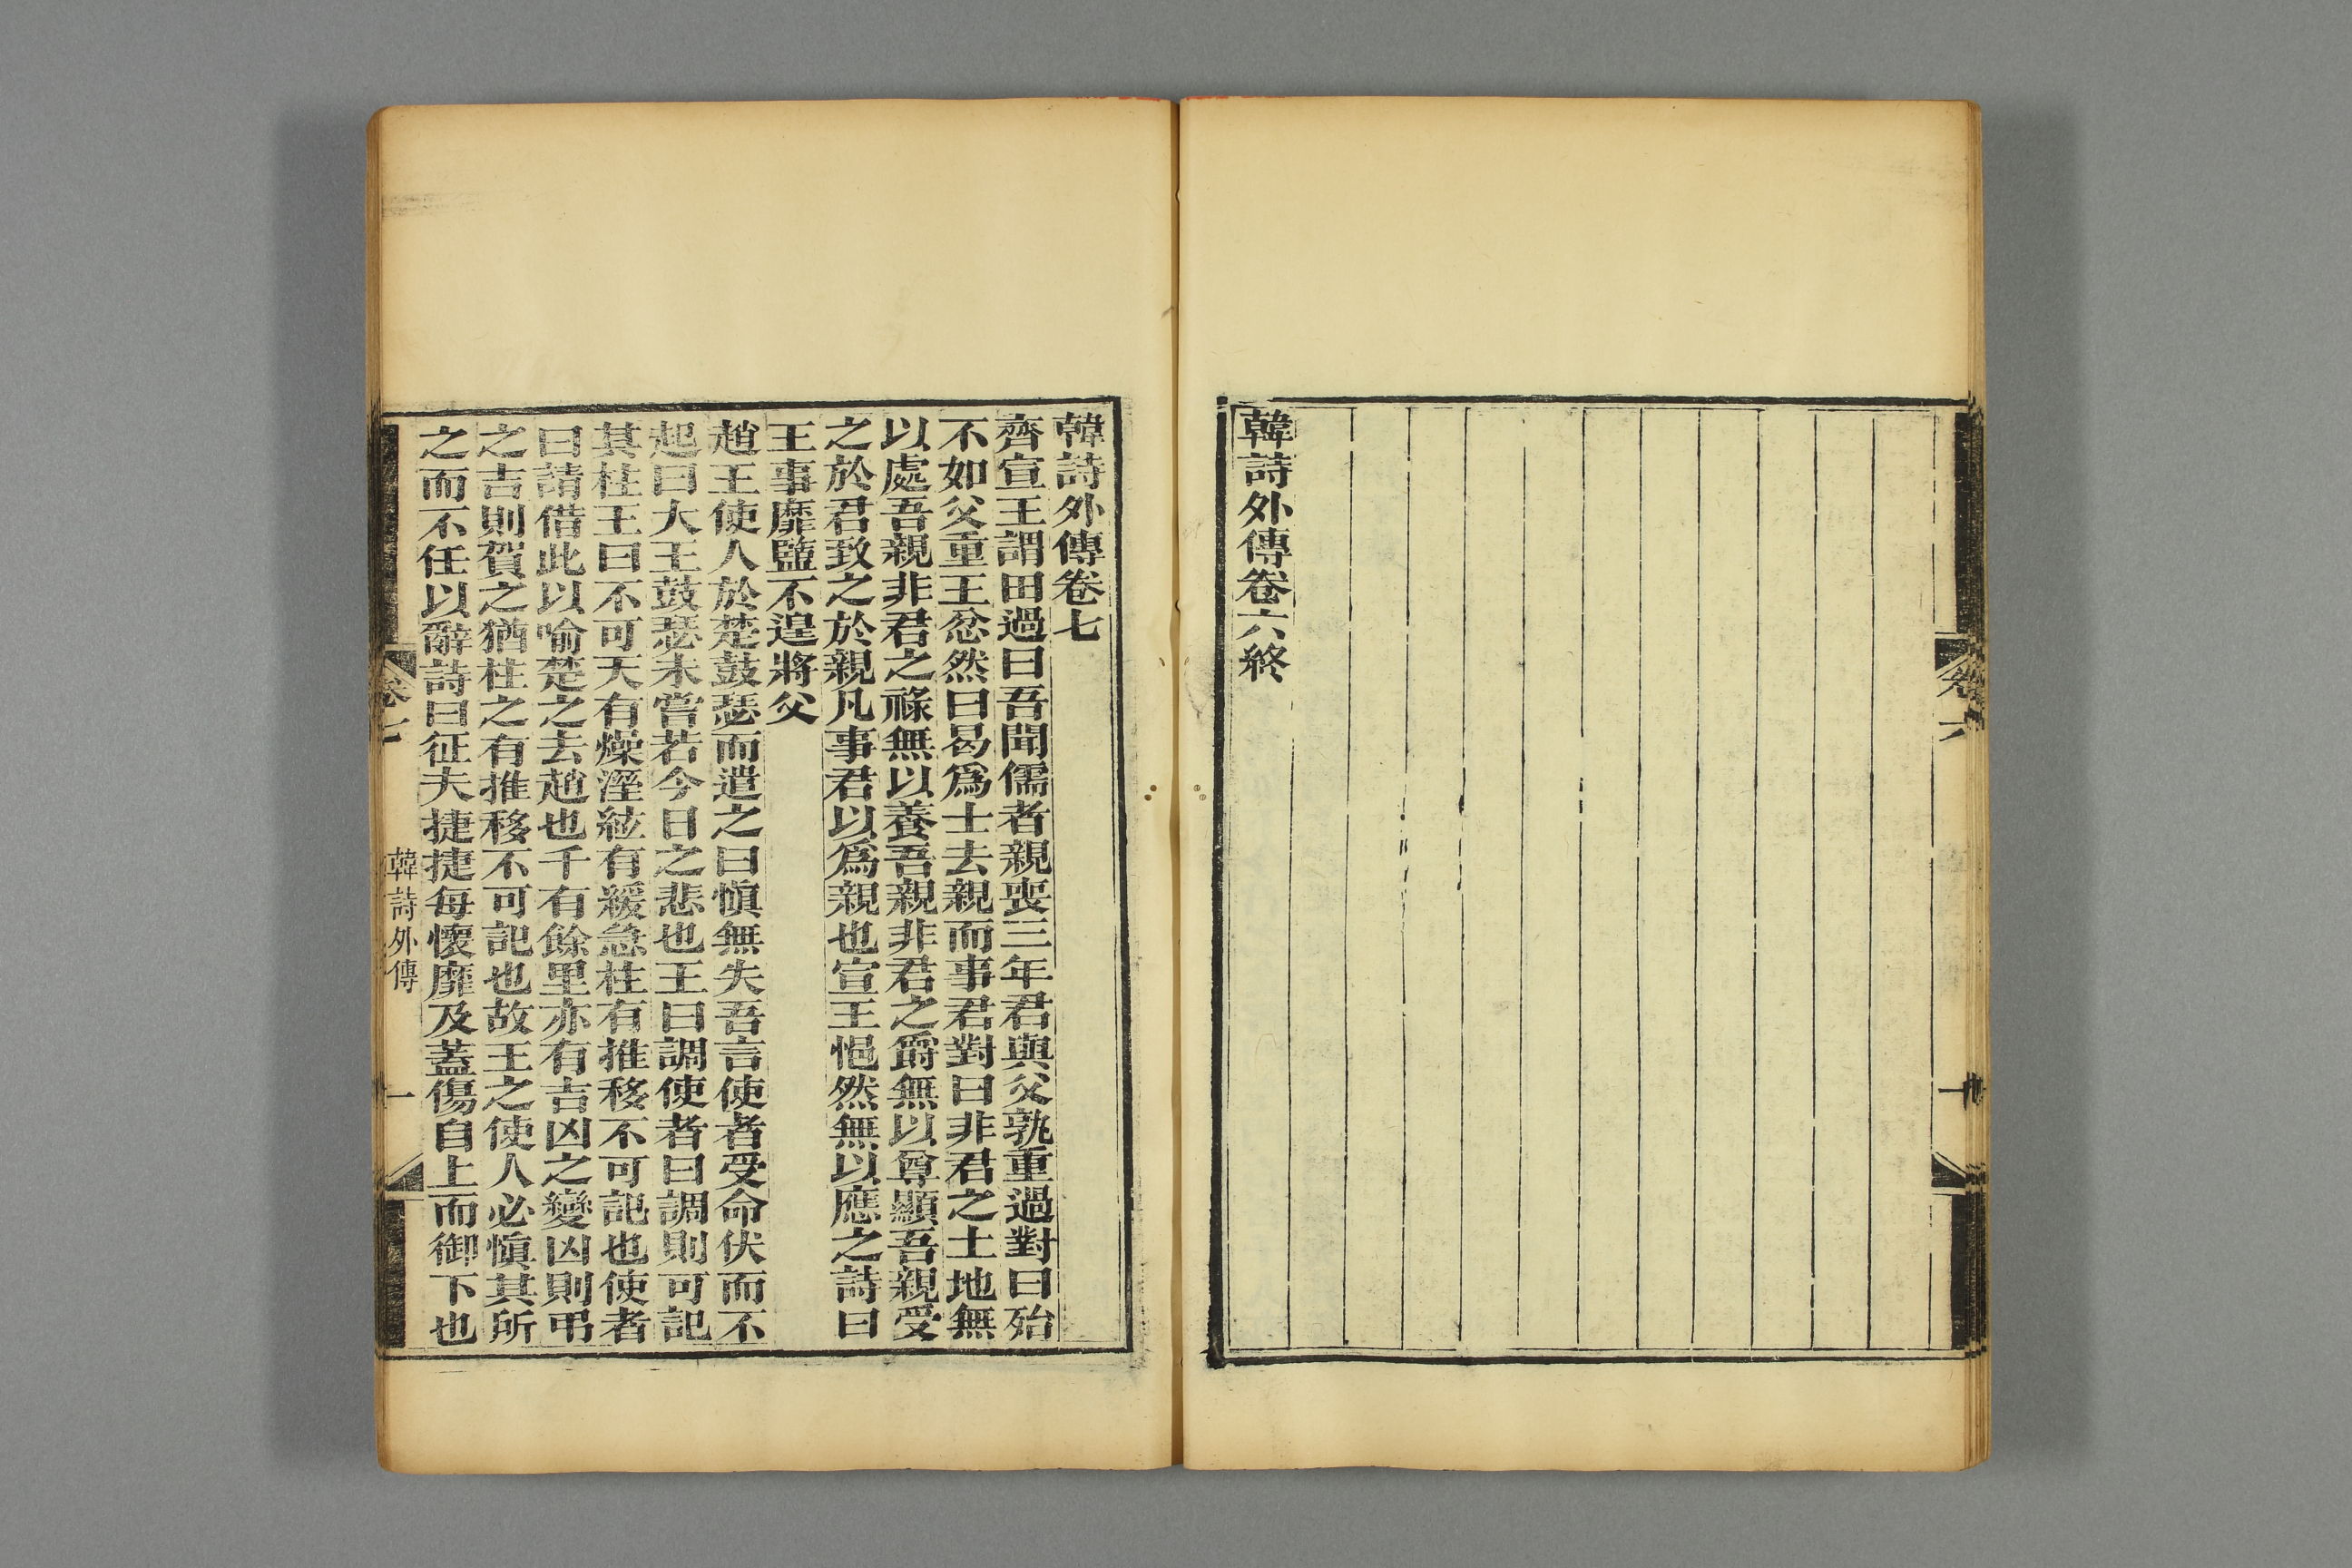 卷六
十
韓詩外傳卷六終
韓詩外傳卷七
齊宣王謂田過曰吾聞儒者親喪三年君與父孰重過對曰殆
不如父重王忿然曰曷爲士去親而事君對曰非君之土地無
以處吾親非君之祿無以養吾親非君之爵無以尊顯吾親受
之於君致之於親凡事君以爲親也宣王悒然無以應之詩曰
王事靡盬不遑將父
趙王使人於楚鼓瑟而遣之曰愼無失吾言使者受命伏而不
起曰大王鼓瑟未嘗若今日之悲也王曰調使者曰調則可記
其柱王曰不可天有燥溼絃有緩急柱有推移不可記也使者
曰請借此以喻楚之去趙也千有餘里亦有吉凶之變凶則弔
之吉則賀之猶柱之有推移不可記也故王之使人必愼其所
之而不任以辭詩曰征夫捷捷每懷靡及蓋傷自上而御下也
卷七
韓詩外傳
一